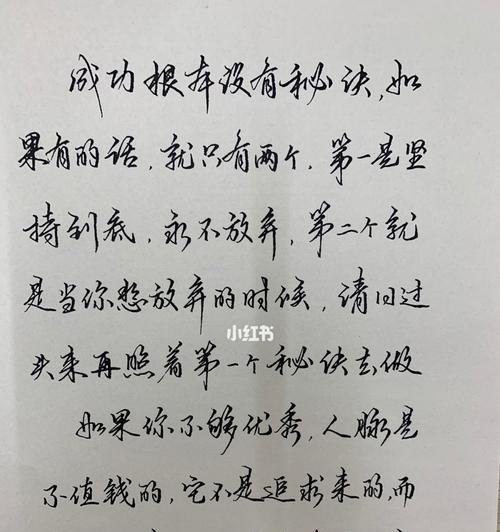 成功根本没有秘诀，如
果有的话，就只有两个，第一是坚
持到底，永不放弃，第二个就
是当你想放弃的时候，请回过
头来再照着第一个秘诀去做
小红书
如果你不够优秀，人脉是
不值钱的，它不是追求来的，而